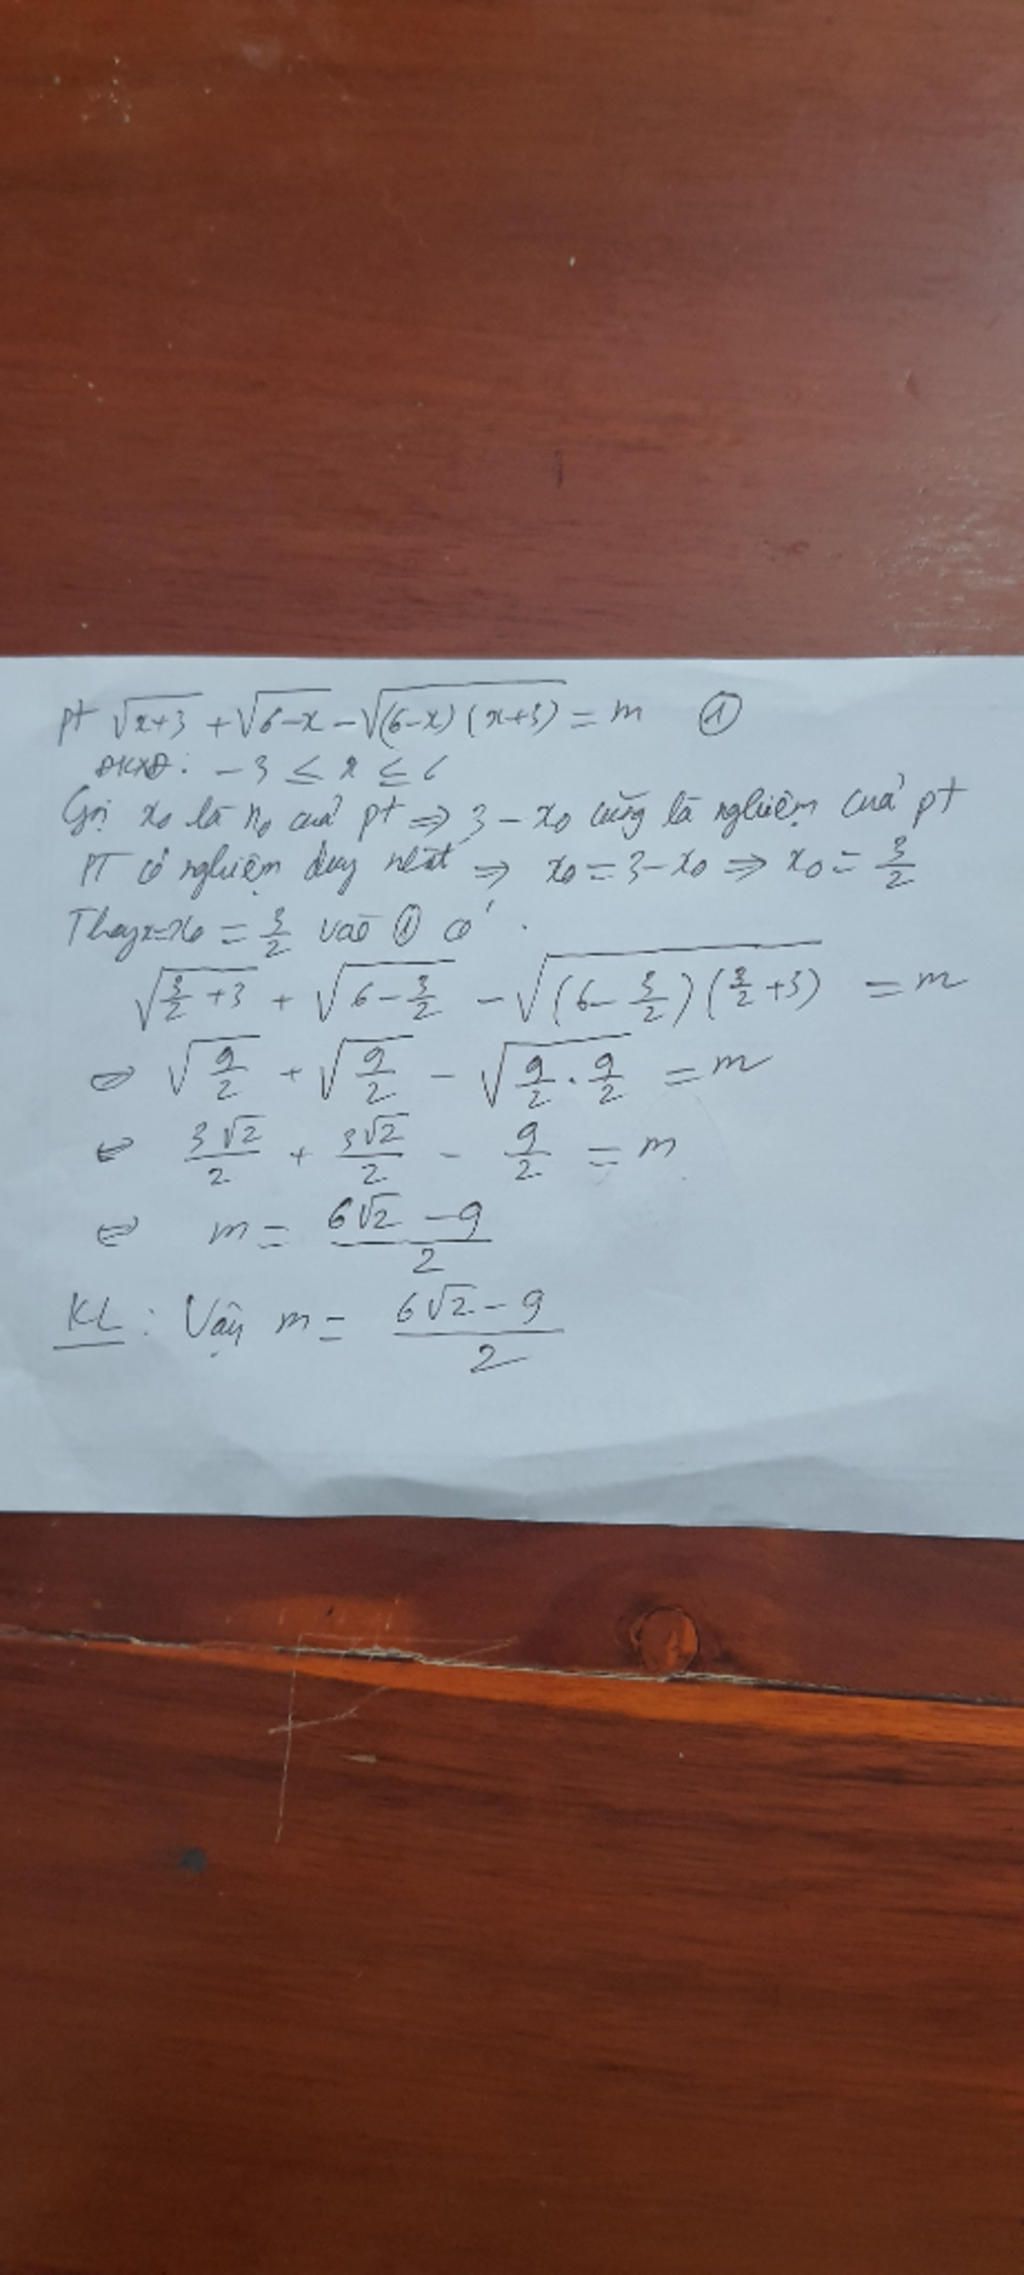 pt √(x+3) + √(6-x) - √((6-x)(x+3)) = m ①
ĐKXĐ: -3 ≤ x ≤ 6
Gọi x₀ là n₀ của pt ⇒ 3 - x₀ cũng là nghiệm của pt
PT có nghiệm duy nhất ⇒ x₀ = 3 - x₀ ⇒ x₀ = 3/2
Thay x = x₀ = 3/2 vào ① có:
√(3/2 + 3) + √(6 - 3/2) - √((6 - 3/2)(3/2 + 3)) = m
⇔ √(9/2) + √(9/2) - √(9/2 . 9/2) = m
⇔ 3√2/2 + 3√2/2 - 9/2 = m
⇔ m = (6√2 - 9)/2
KL: Vậy m = (6√2 - 9)/2